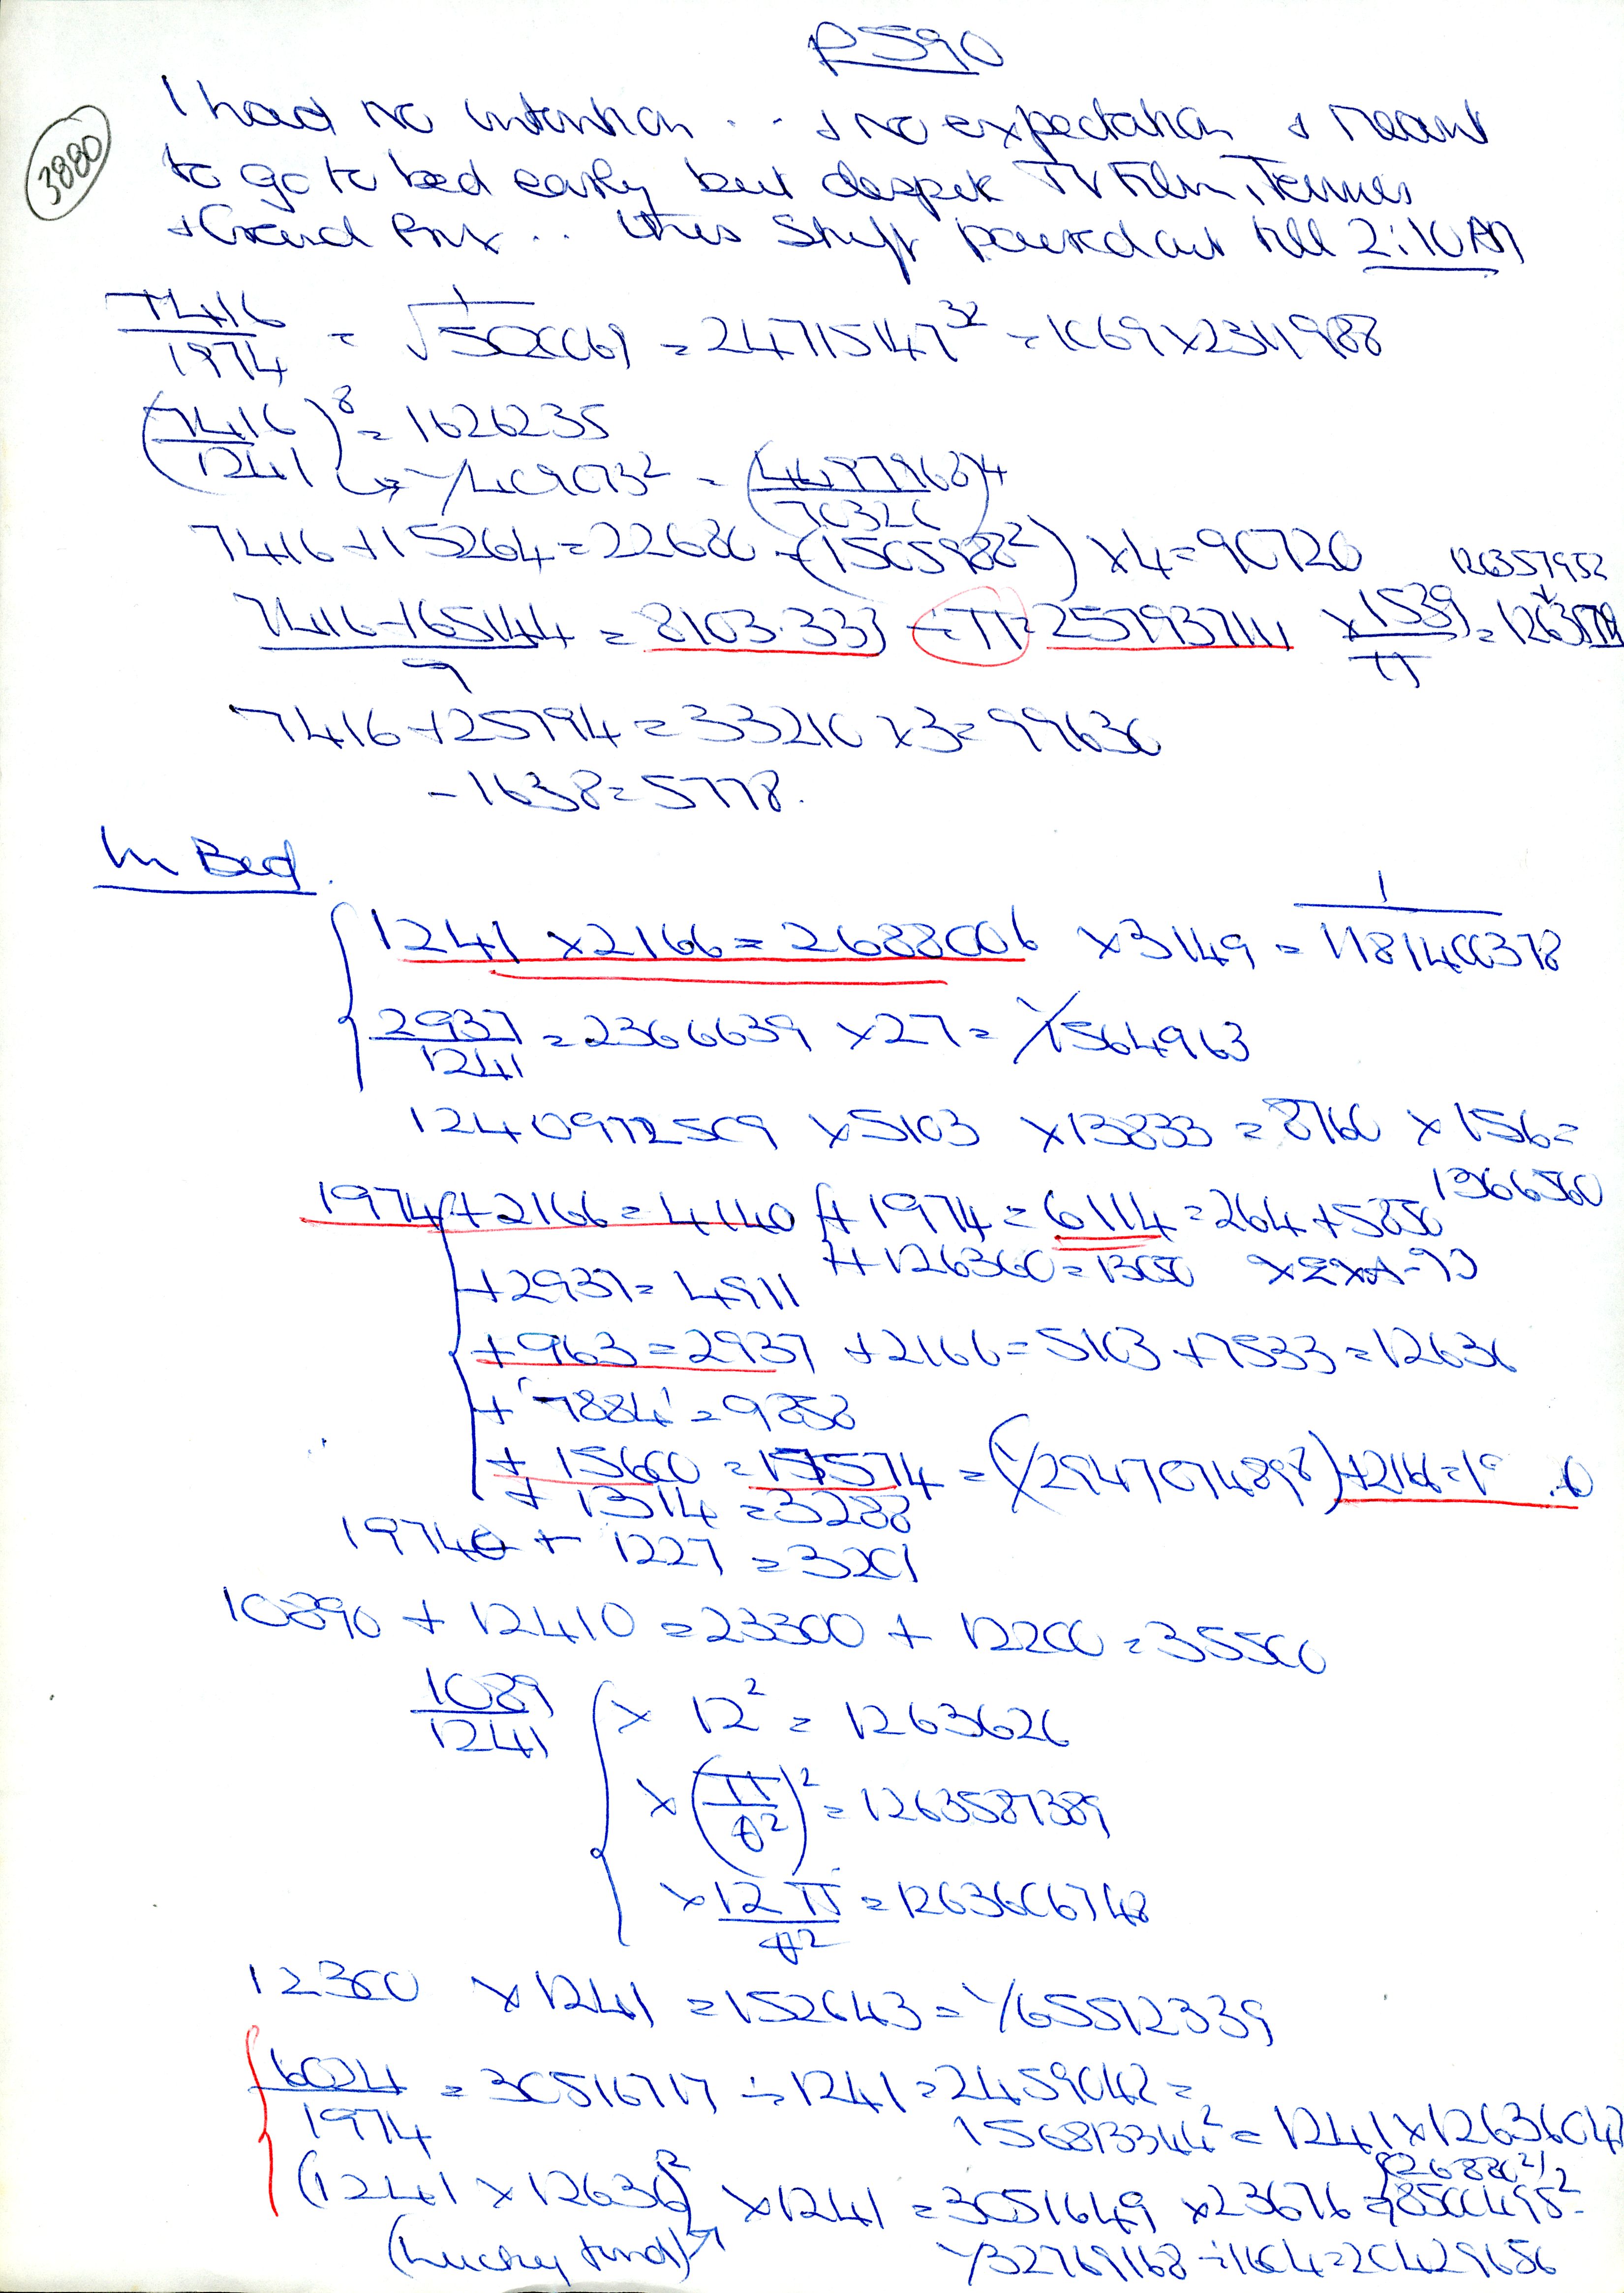 P590
3880
I had no intention .. + no expectation + meant
to go to bed early but despite TV Film, Tennis
+ Grand Prix .. this stuff poured out till 2:10AM
7416/1974 = 1/√500069 = 24715147^32 = 1069 x 2311988
(7416/1241)^8 = 1626235
7416 + 15264 = 22680 = (1505988^2) x 4 = 90720
126357952
7416 + 165144 = 8103.333 ÷ π = 257937111 x 1539/π
7416 + 25794 = 33210 x 3 = 99630
- 1638 = 5778.
In Bed.
1241 x 2166 = 2688006 x 3149 = 1/1181400378
2937/1241 = 2366639 x 27 = 1/1564963
1240972509 x 5103 x 13833 = 8760 x 156 =
1366560
1974 + 2166 = 4140 + 1974 = 6114 = 264 + 5850
+ 126360 = 1305
+ 2937 = 4911
+ 963 = 2937 + 2166 = 5103 + 7533 = 12636
+ '7884' = 9858
+ 15600 = 17574 = (1/2947074898)
+ 1314 = 3288
1974 + 1227 = 3201
10890 + 12410 = 23300 + 12200 = 35500
1089/1241 x 12^2 = 1263626
x (π/θ^2)^2 = 1263587389
x 12π/θ^2 = 1263606748
12300 x 1241 = 152643 = 1/65512339
6024/1974 = 30516717 ÷ 1241 = 2459042 =
156813344^2 = 1241 x 12636042
(1241 x 12636)^2 x 1241 = 3051649 x 23676 =
(Lucky find) 1/32769168 ÷ 1604 = 20429656